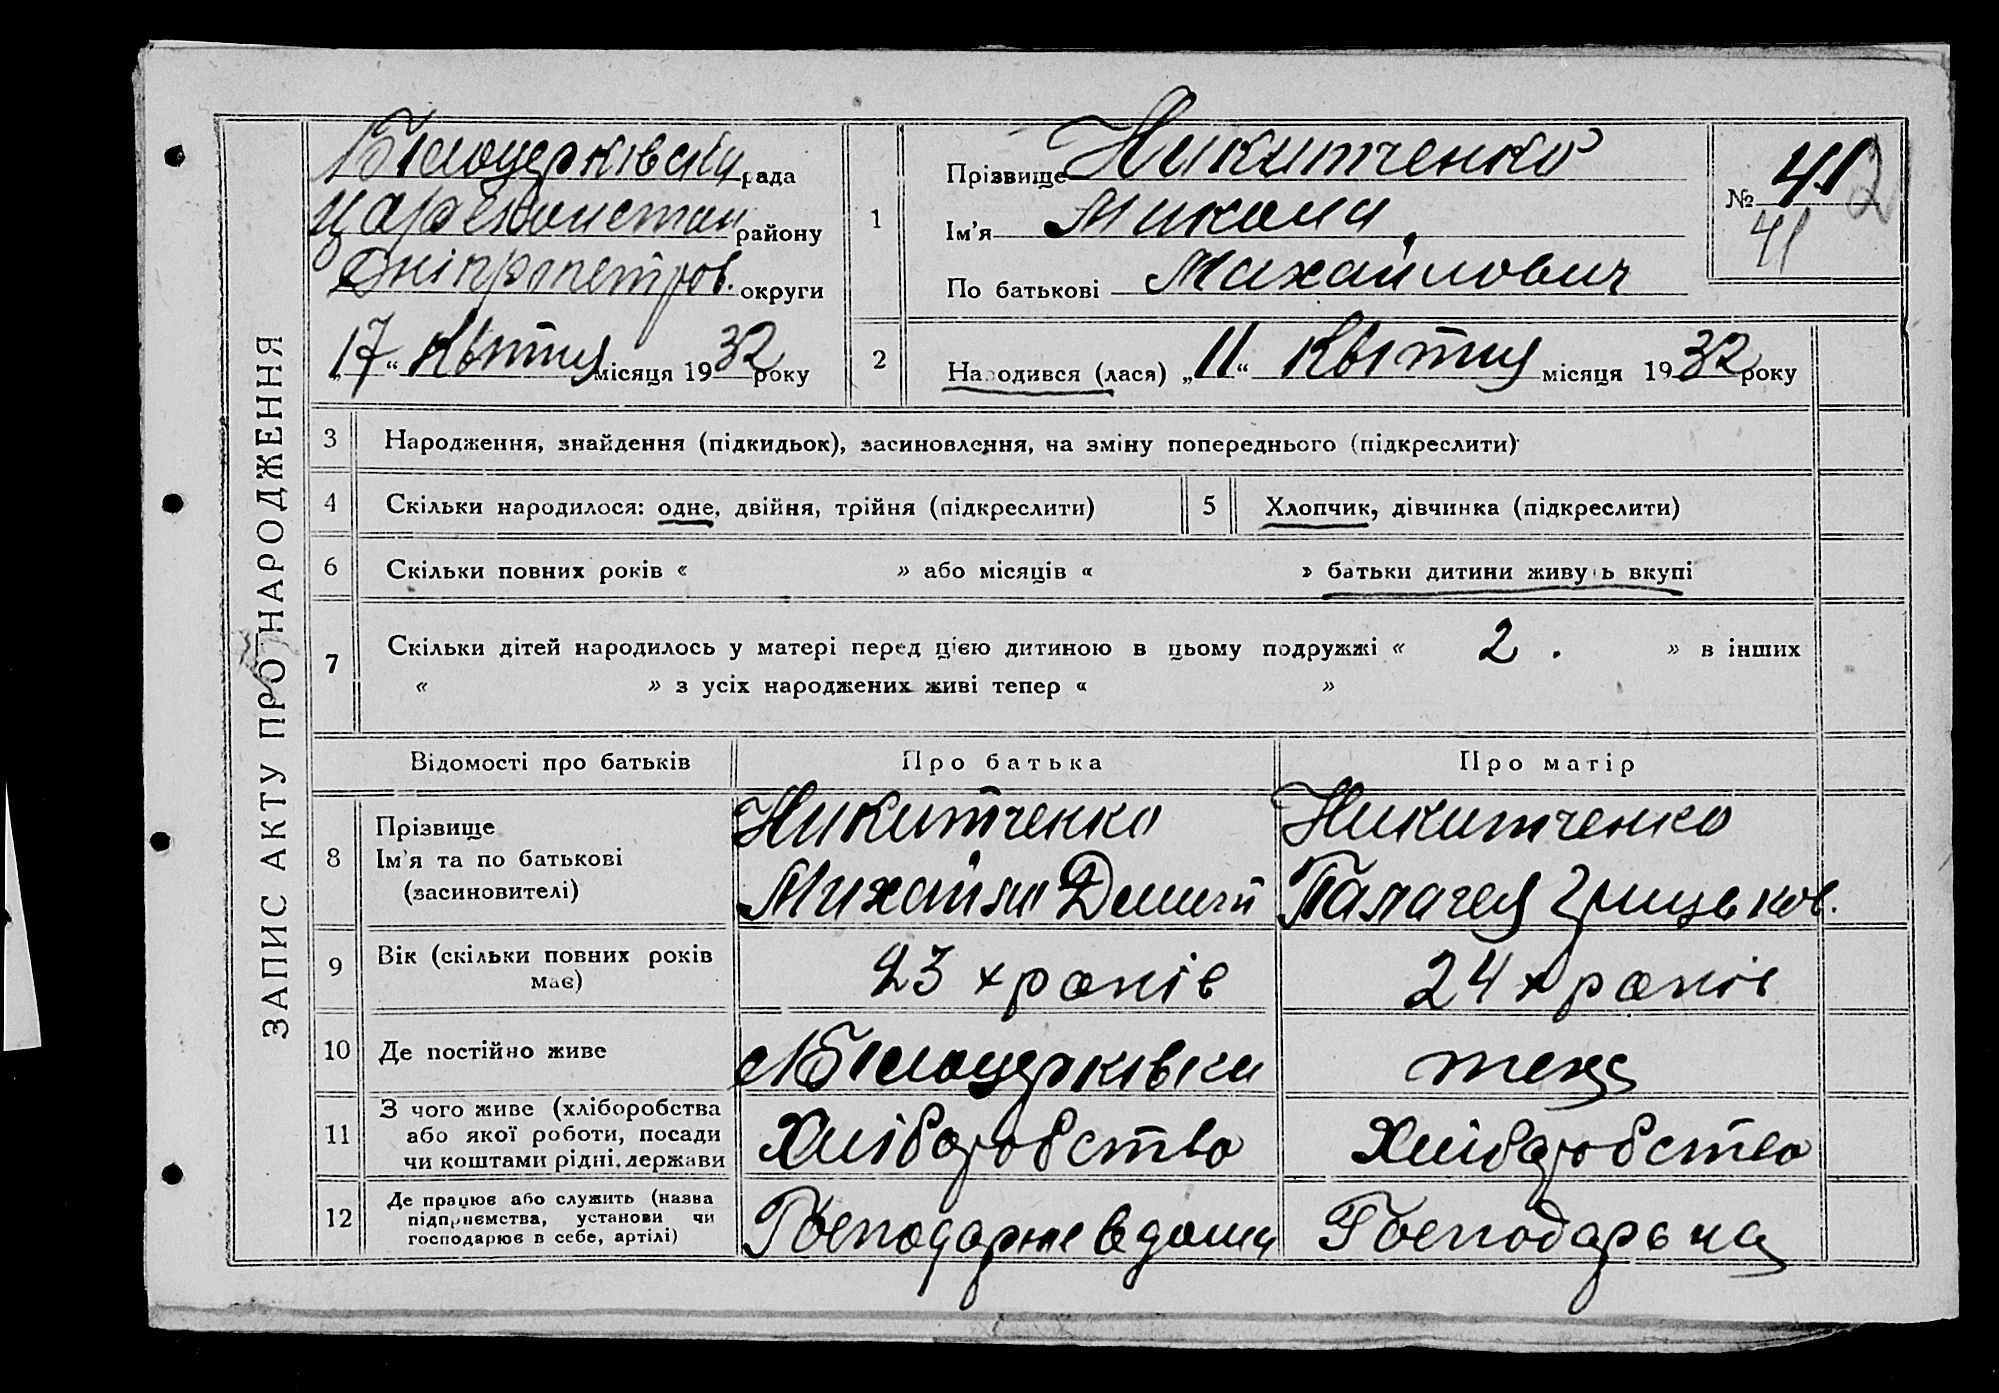 ЗАПИС АКТУ ПРО НАРОДЖЕННЯ
Білоцерківська рада
Цареконстан району
Дніпропетров. округи
„17“ Квітня місяця 1932 року
1
Прізвище Никитченко
Ім'я Микола
По батькові Михайлович
№ 41
41
2
2 Народився (лася) „11“ Квітня місяця 1932 року
3 Народження, знайдення (підкидьок), засиновлення, на зміну попереднього (підкреслити)
4 Скільки народилося: одне, двійня, трійня (підкреслити)
5 Хлопчик, дівчинка (підкреслити)
6 Скільки повних років « » або місяців « » батьки дитини живуть вкупі
7 Скільки дітей народилось у матері перед цією дитиною в цьому подружжі « 2. » в інших
« » з усіх народжених живі тепер « »
Відомості про батьків Про батька Про матір
8 Прізвище
Ім'я та по батькові
(засиновителі)
Никитченко
Михайло
Никитченко
Палагея Грицьков.
9 Вік (скільки повних років
має)
23 х років
24 х років
10 Де постійно живе
теж
11 З чого живе (хліборобства
або якої роботи, посади
чи коштами рідні, держави
Хліборобство
Хліборобство
12 Де працює або служить (назва
підприємства, установи чи
господарює в себе, артілі)
вдома